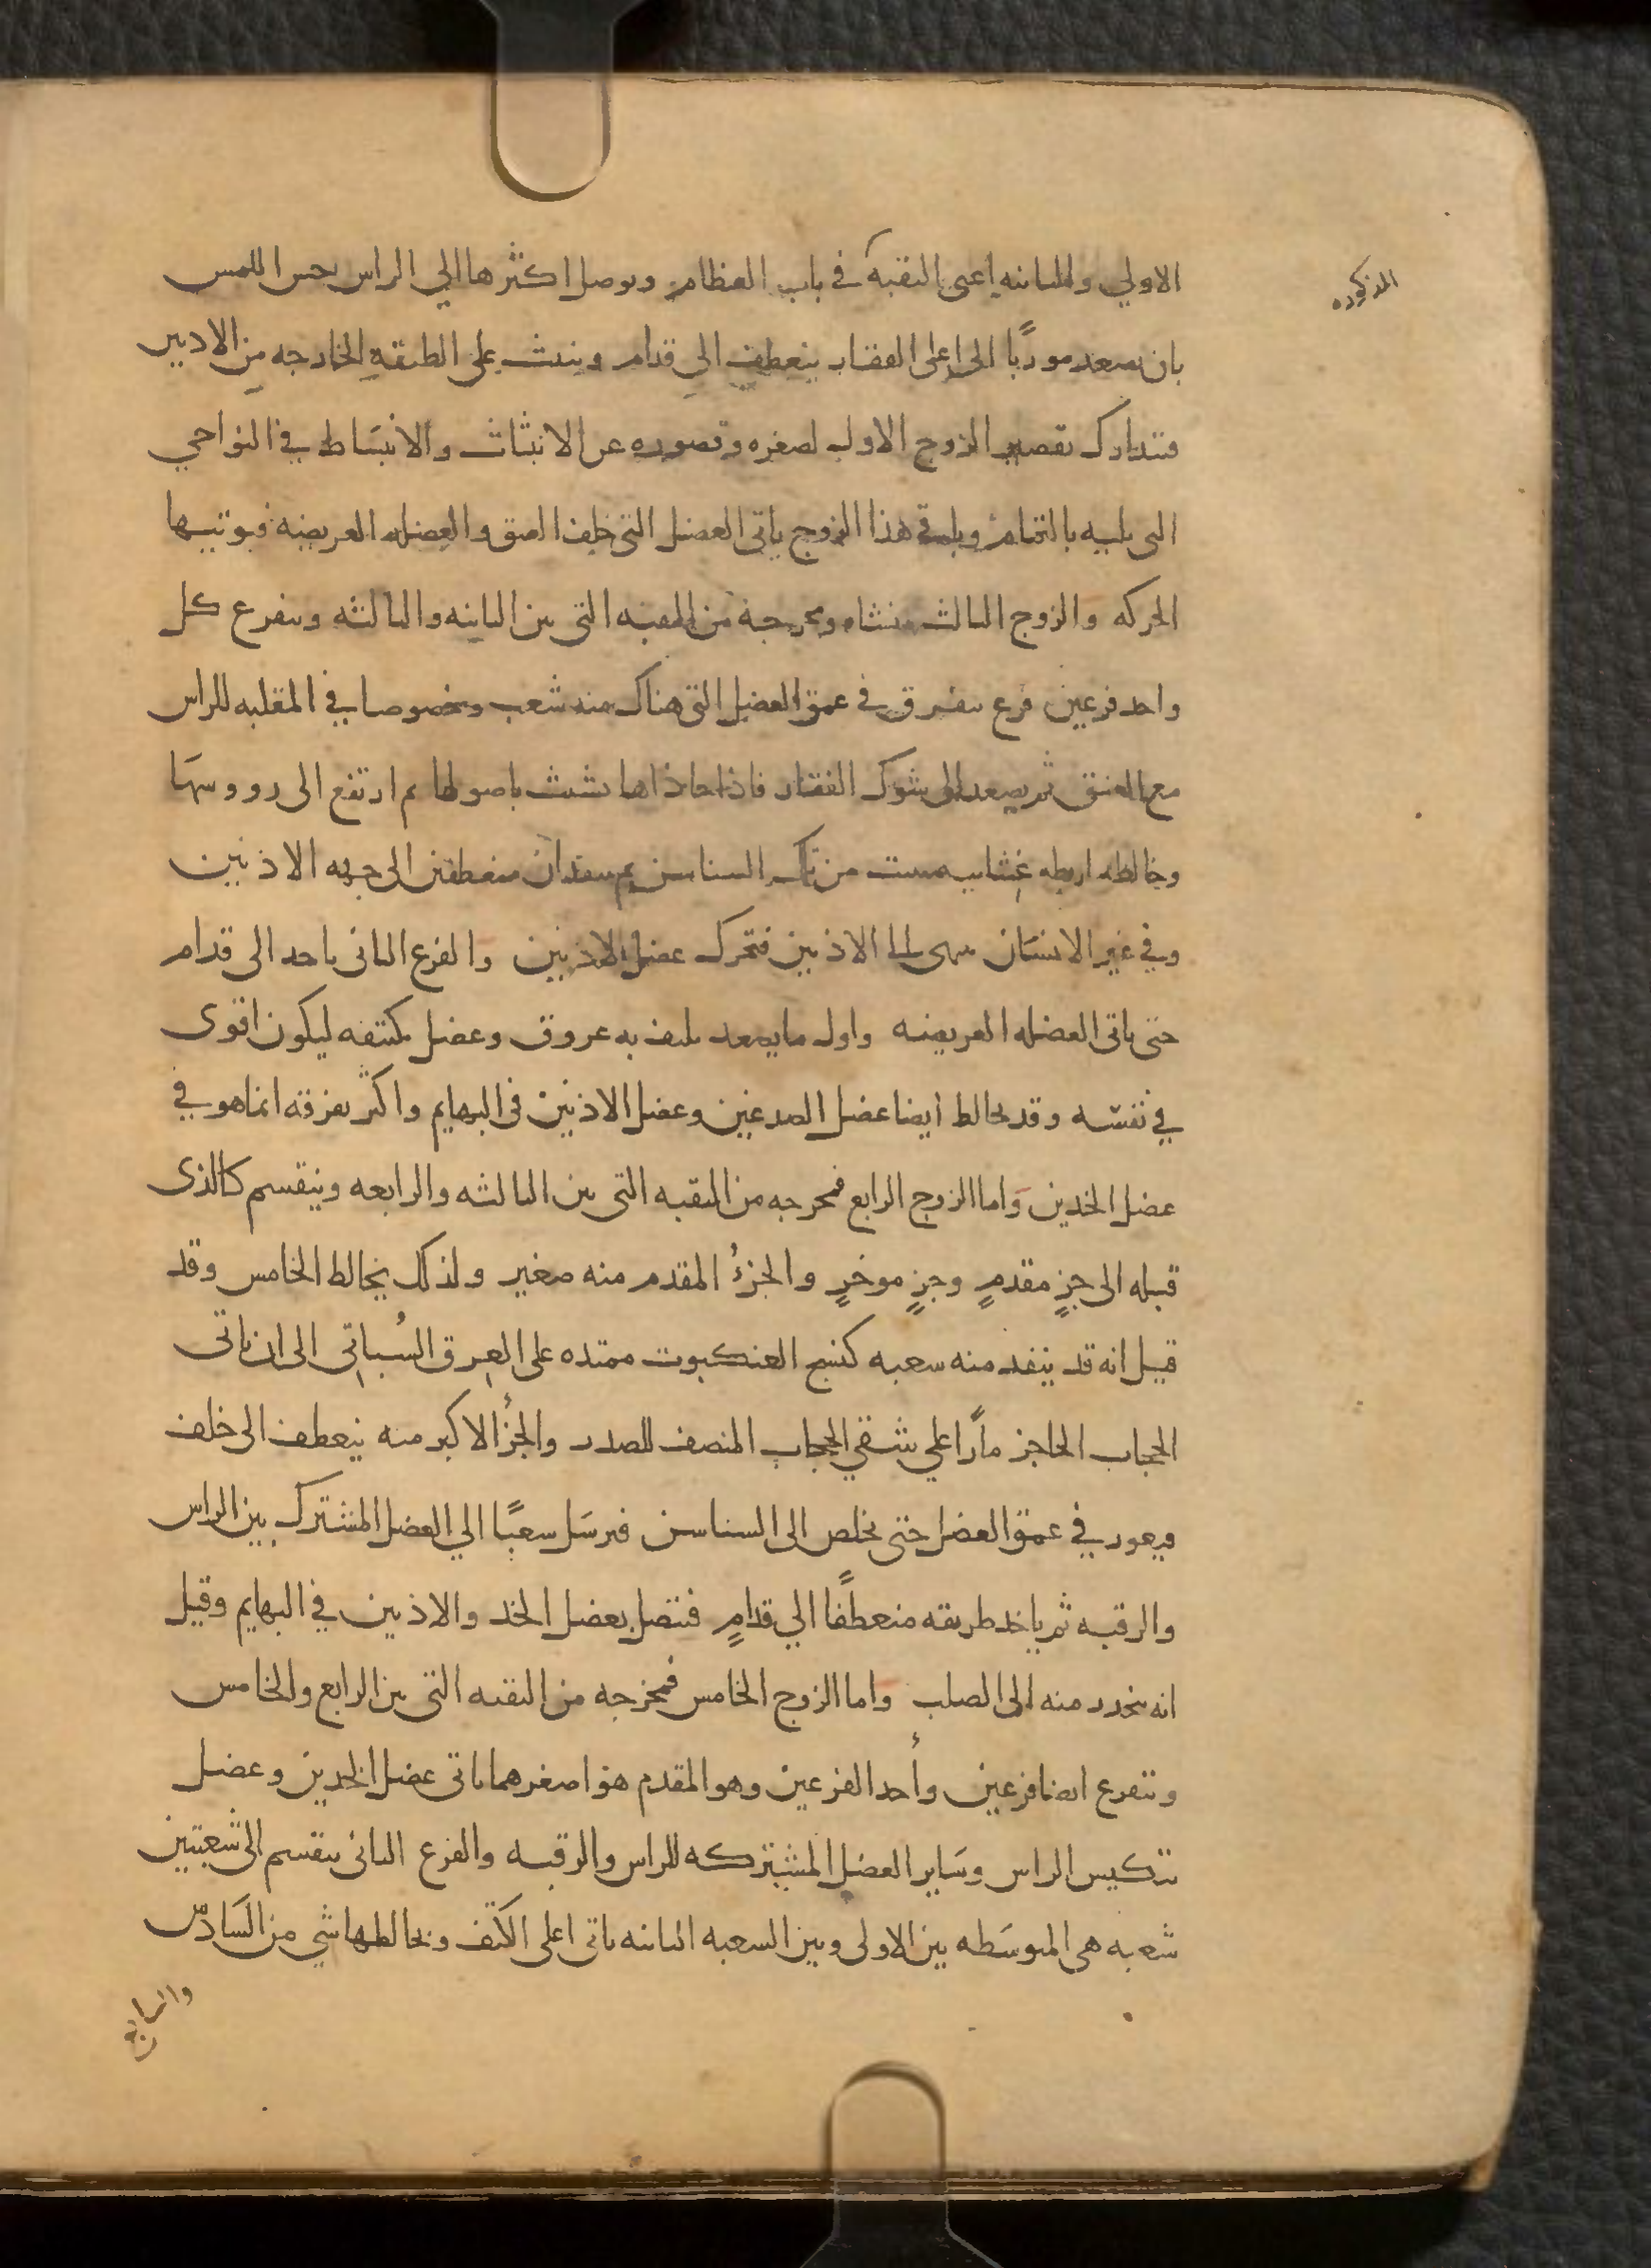 الاولي والثانيه اعنى الثقبة في باب العظام ويوصل اكثرها الي الراس بحس اللمس
المذكوره
بان يصعد موربًا الى اعلى الفقار ينعطف الى قدام وينبث على الطبقه الخارجه من الاذنين
فتدارك تقصير الزوج الاول لصغره وقصوره عن الانبثاث والانبساط في النواحي
التى يليه بالتمام وباقى هذا الزوج ياتى العضل التى خلف العنق والعضله العريضه فيوتيها
الحركه والزوج الثالث منشاه ومخرجه من الثقبه التى بين الثانيه والثالثه ويتفرع كل
واحد فرعين فرع يتفرق في عمق العضل التى هناك منه شعب وخصوصا في المقلبه للراس
مع العنق ثم يصعد الى شوك الفقار فاذا حاذاها تشبث باصولها ثم ارتفع الى رووسها
وخالطه اربطه غشائيه تنبت من تلك السناسن ثم ينفذان منعطفين الى جهه الاذنين
وفي غير الانسان ينتهى الى الاذنين فتحرك عضل الاذنين والفرع الثانى ياخذ الى قدام
حتى ياتى العضله العريضه واول ما يصعد يلتف به عروق وعضل يكتنفه ليكون اقوى
في نفسه وقد يخالط ايضا عضل الصدغين وعضل الاذنين فى البهايم واكثر تفرقه انما هو في
عضل الخدين واما الزوج الرابع فمخرجه من الثقبه التى بين الثالثه والرابعه وينقسم كالذى
قبله الى جزٍ مقدمٍ وجزٍ موخرٍ والجزءُ المقدم منه صغير ولذلك يخالط الخامس وقد
قيل انه قد ينفد منه شعبه كنسج العنكبوت ممتده على العِرق السُباتى الى ان ياتى
الحجاب الحاجز مارًا علي شقي الحجاب المنصف للصدر والجزُ الاكبر منه ينعطف الى خلف
فيعود في عمق العضل حتى يخلص الى السناسن فيرسل شعبًا الي العضل المشترك بين الراس
والرقبه ثم ياخد طريقه منعطفًا الي قدامٍ فتتصل بعضل الخد والاذنين في البهايم وقيل
انه ينحدر منه الى الصلب واما الزوج الخامس فمخرجه من الثقبه التى بين الرابع والخامس
وتتفرع ايضا فرعين وأحد الفرعين وهو المقدم هو اصغرهما ياتى عضل الخدين وعضل
تنكيس الراس وساير العضل المشتركه للراس والرقبه والفرع الثانى ينقسم الى شعبتين
شعبه هى المتوسطه بين الاولى وبين الشعبه الثانيه ياتى اعلى الكتف ويخالطها شي من السادس
والسابع